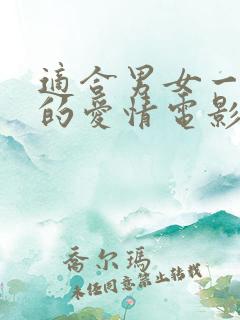 適合男女一
的愛情電影
喬尔瑪
未经同意禁止转载